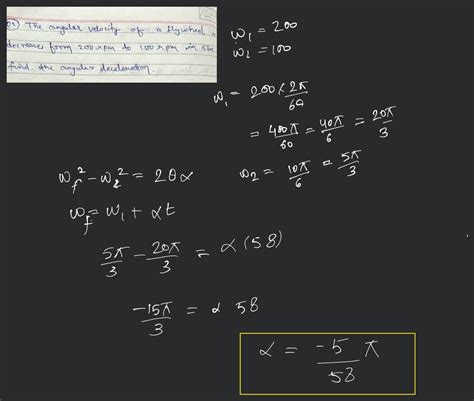 Q5) The angular velocity of a flywheel
decreases from 200 rpm to 100 rpm in
find the angular deceleration.
ω₁ = 200
ω₂ = 100
ω₁ = 200 × 2π/60
= 400π/60 = 40π/6 = 20π/3
ω₂ = 10π/6 = 5π/3
ω_f² − ω_i² = 2θα
ω_f = ω₁ + αt
5π/3 − 20π/3 = α(58)
−15π/3 = α 58
α = −5/58 π